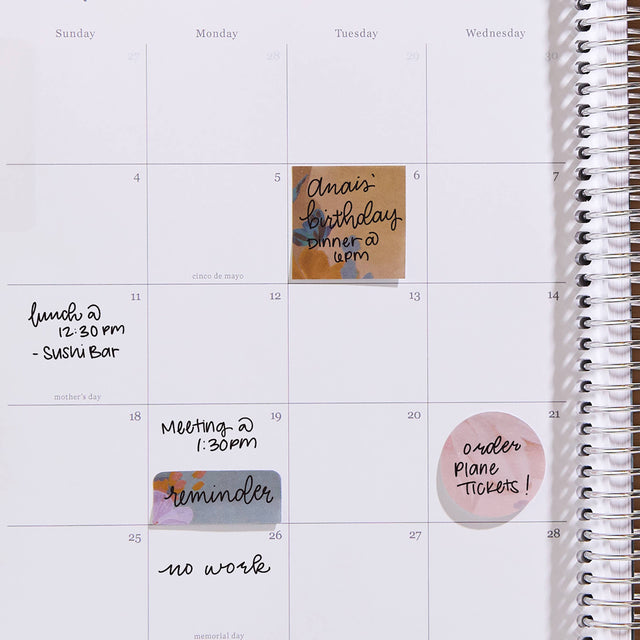 Sunday Monday Tuesday Wednesday
27 28 29 30
4 5 6 7
anais'
birthday
Dinner @
6pm
cinco de mayo
11 12 13 14
lunch @
12:30 PM
- Sushi Bar
mother's day
18 19 20 21
Meeting @
1:30pm
reminder
order
Plane
Tickets!
25 26 27 28
no work
memorial day